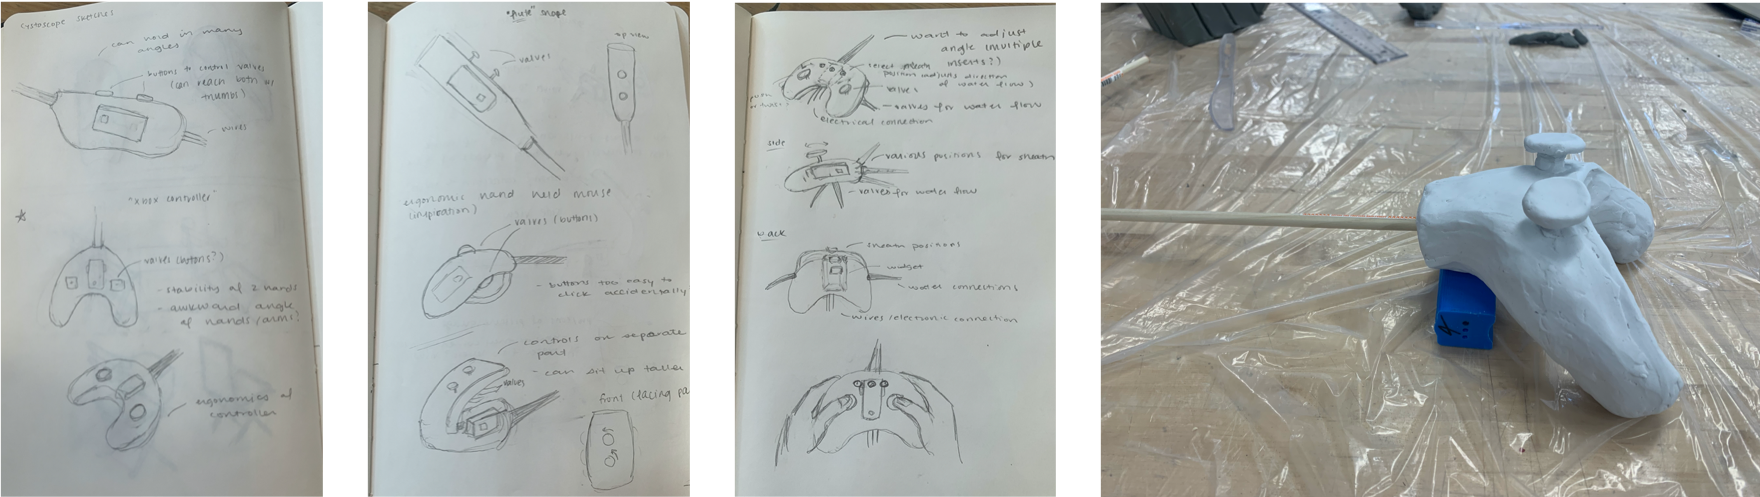 cystoscope sketches
can hold in many
angles
buttons to control valves
(can reach both w/
thumb)
wires
"xbox controller"
valves (buttons?)
- stability of 2 hands
- awkward angle
of hands/arms?
ergonomics of
controller
"flute" shape
top view
valves
ergonomic hand held mouse
(inspiration)
valves (buttons)
- buttons too easy to
click accidentally
controls on separate
part
- can sit up taller
valves
front (facing
want to adjust
angle (multiple
inserts?)
position adjusts direction
of water flow)
valves
valves for water flow
electrical connection
side
various positions for sheath
valves for water flow
back
sheath positions
widget
water connections
wires/electronic connection